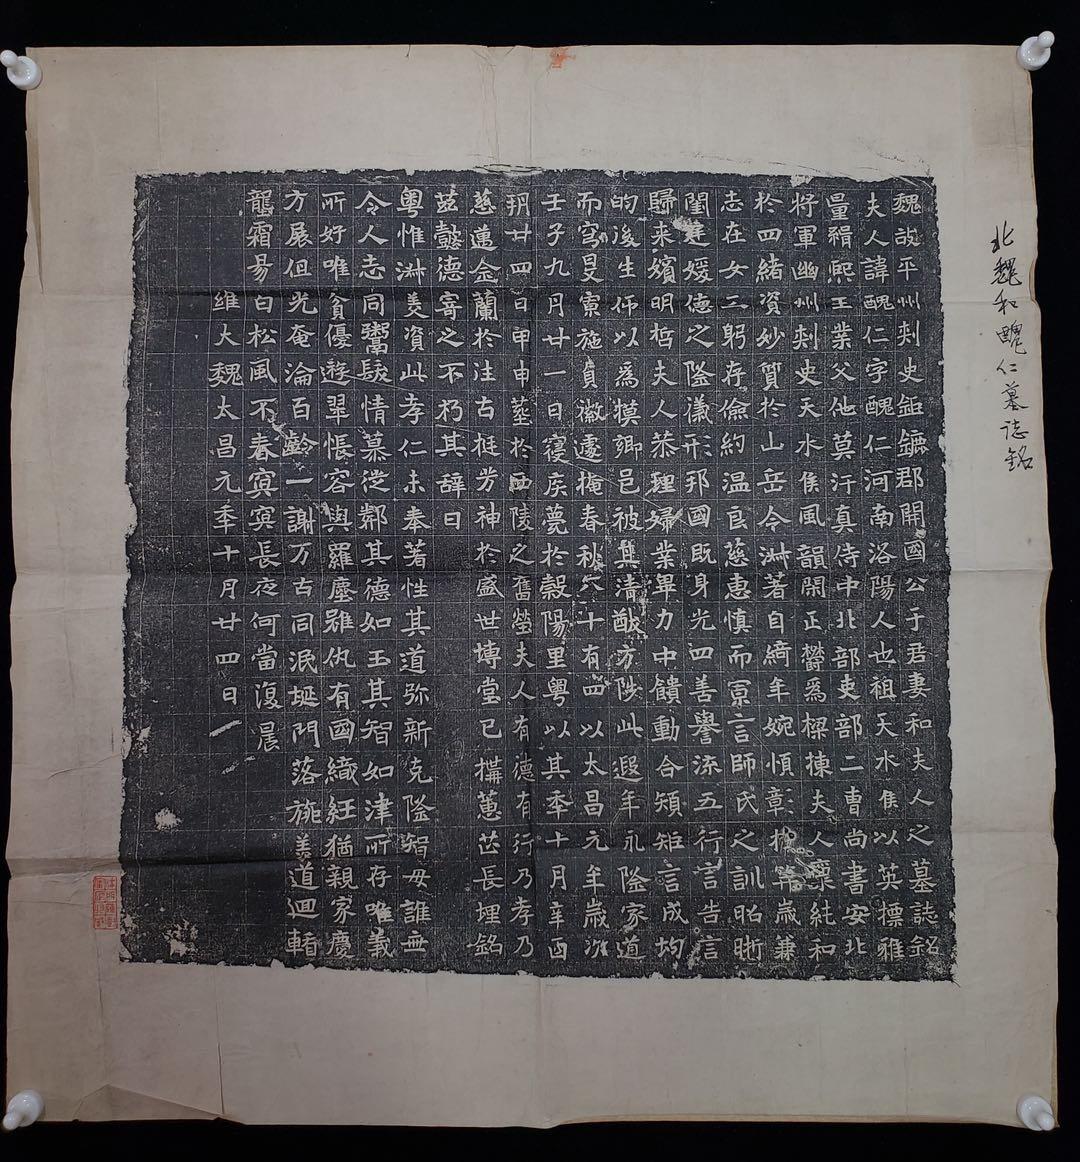 北魏和醜仁墓誌銘
魏故平州刾史鉅鏕郡開國公于君妻和夫人之墓誌銘
夫人諱醜仁字醜仁河南洛陽人也祖天水侯以英摽雅
量緝熙王業父他莫汗真侍中北部吏部二曹尚書安北
將軍幽州刾史天水侯風韻閑正欝爲樑棟夫人稟純和
於四緒資妙質於山岳令淋著自綺年婉慎彰歲兼
志在女工躬存儉約温良慈惠慎而寡言師氏之訓昭晣
閨庭媛德之隆瀁形邦國既身光四善譽流五行言告言
歸来嬪明哲夫人恭理婦業畢力中饋動合規矩言成均
的後生仰以爲摸卿邑被其清猷方陟此遐年永隆家道
而穹旻寡施貞徽遽掩春秋六十有四以太昌元年歲次
壬子九月廿一日寑疾薨於穀陽里粤以其年十月辛酉
玥廿四日甲申葬於西陵之舊塋夫人有德有行乃孝乃
慈邁金蘭於注古挺芳神於盛世塼堂已構蕙芷長埋銘
玆懿德寄之不朽其辞曰
粤惟淋羙資此孝仁未奉著性其道弥新克隆智母誰無
令人志同鬻駇情慕従鄰其德如玉其智如津所存唯義
所好唯貧優遊翠悵容與羅塵雖仇有國織紝猶親家慶
方展但光奄淪百齡一謝万古同泯埏門落旐羨道迴輴
龍霜昜白松風不春冥冥長夜何當復晨
維大魏太昌元年十月廿四日